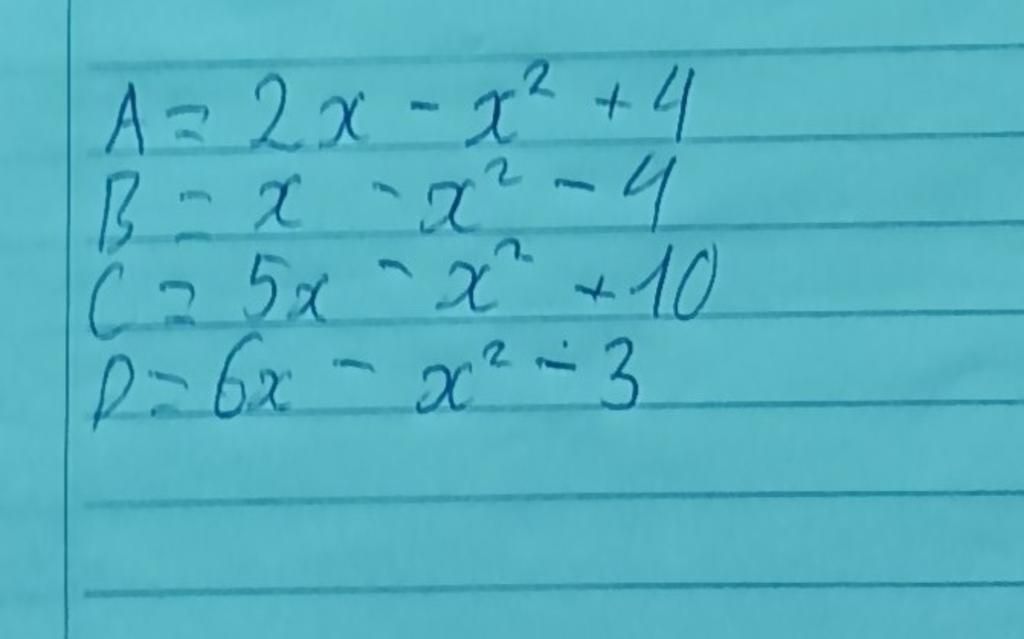 A = 2x - x² + 4
B = x - x² - 4
C = 5x - x² + 10
D = 6x - x² - 3